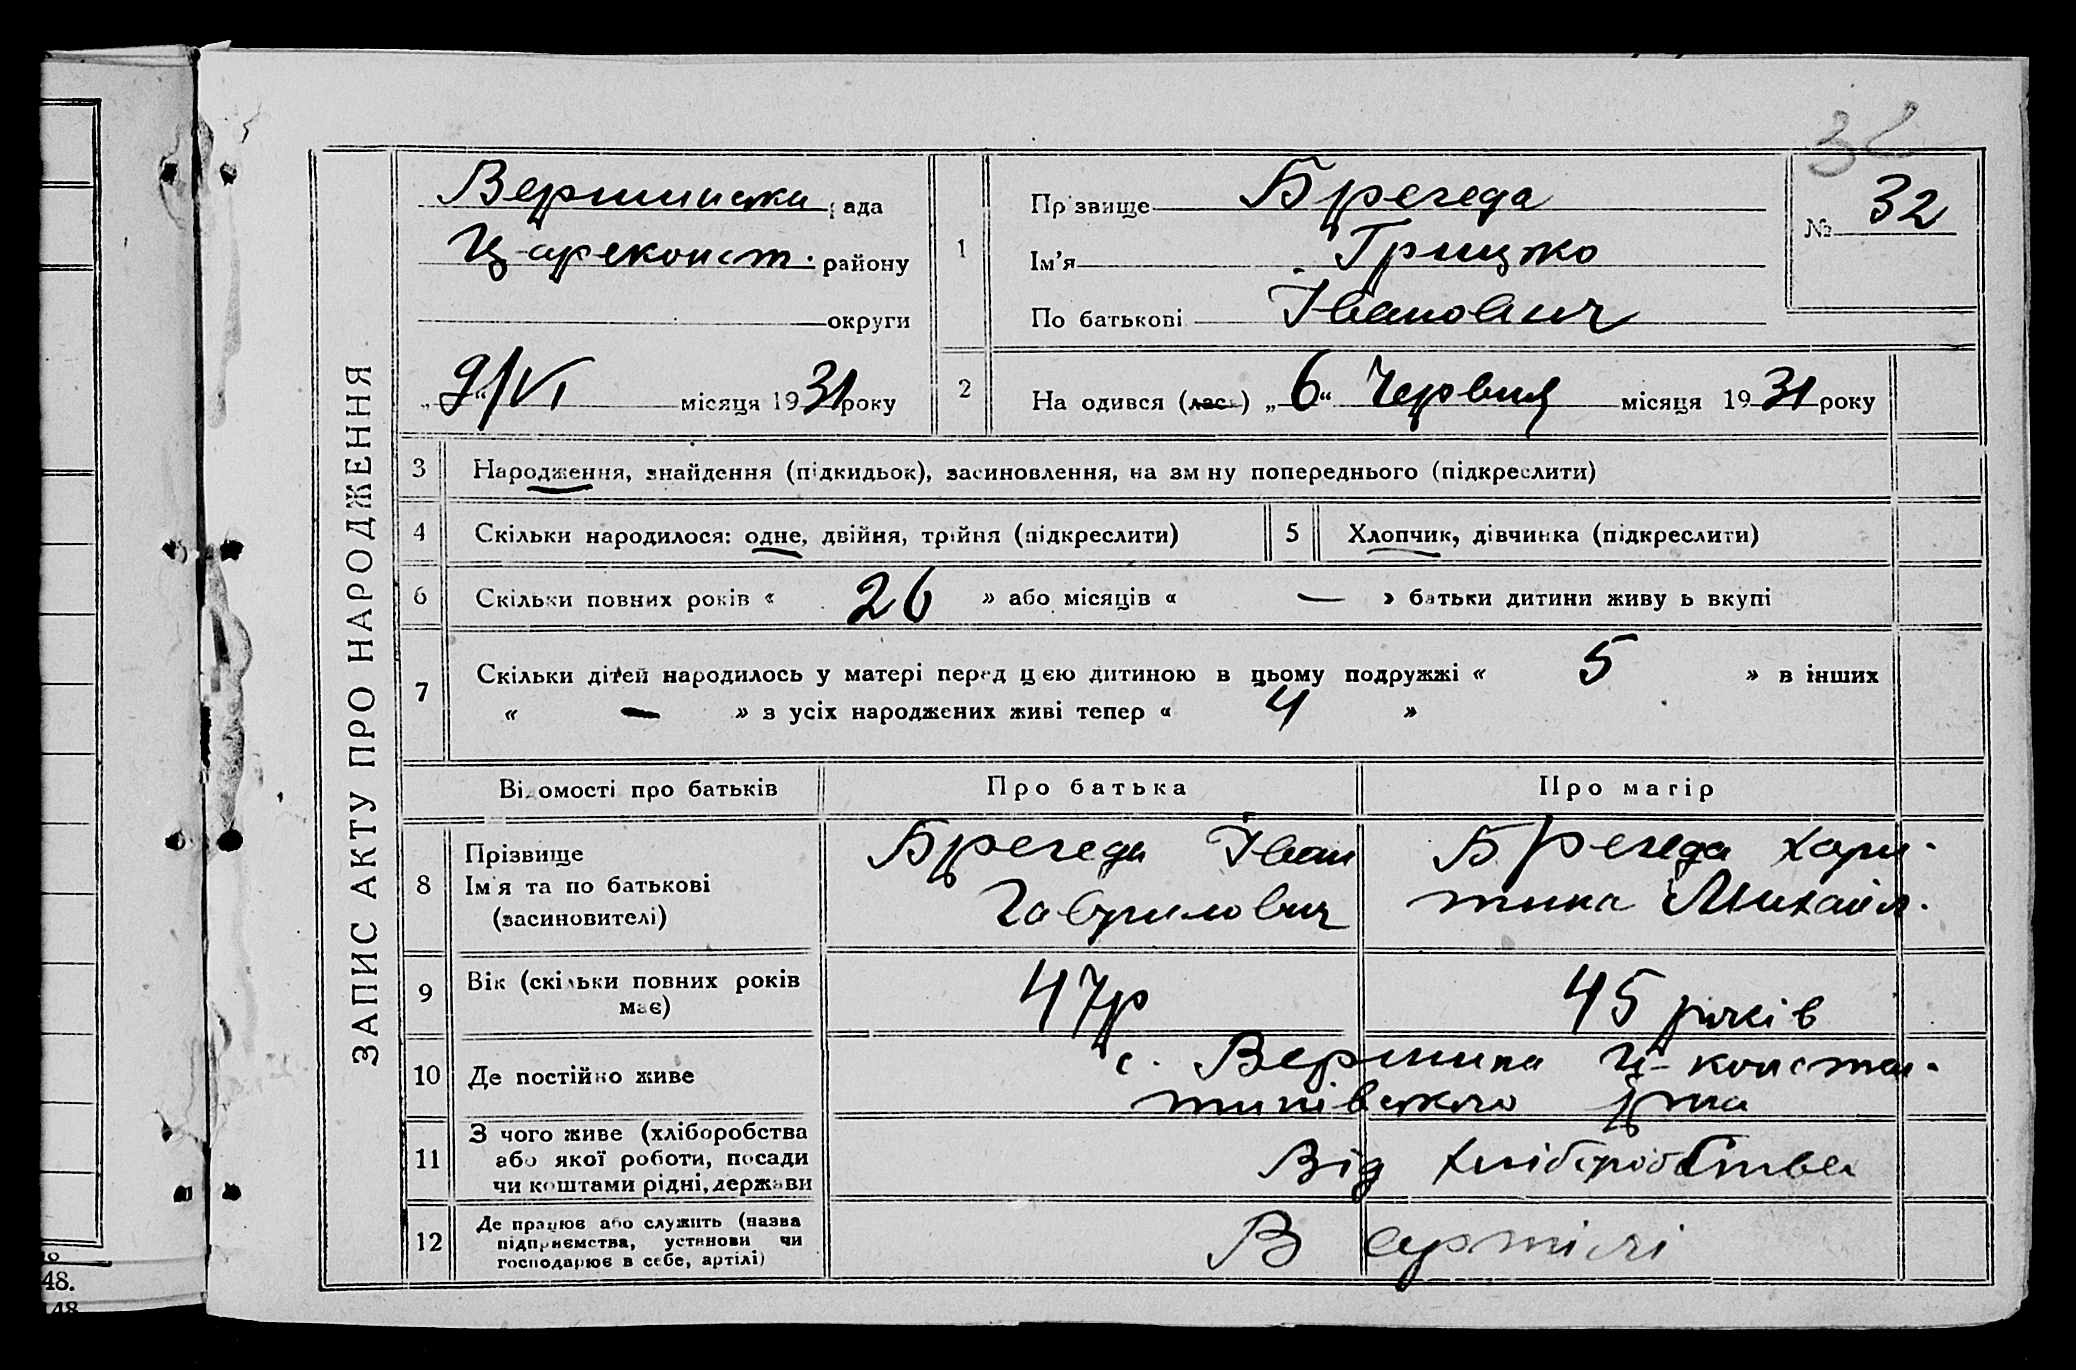 32
Вершинська рада
Цареконст. району
округи
„9/VI місяця 1931 року
1
Прізвище Брегеда
Ім'я Грицько
По батькові Іванович
№ 32
2
На одився (лась) „6“ Червня місяця 1931 року
ЗАПИС АКТУ ПРО НАРОДЖЕННЯ
3 Народження, знайдення (підкидьок), засиновлення, на зміну попереднього (підкреслити)
4 Скільки народилося: одне, двійня, трійня (підкреслити)
5 Хлопчик, дівчинка (підкреслити)
6 Скільки повних років « 26 » або місяців « — » батьки дитини живуть вкупі
7 Скільки дітей народилось у матері перед цією дитиною в цьому подружжі « 5 » в інших
« — » з усіх народжених живі тепер « 4 »
Відомості про батьків
Про батька
Про матір
8 Прізвище
Ім'я та по батькові
(засиновителі)
Брегеда Іван
Гаврилович
Брегеда Хари-
тина Михайл.
9 Вік (скільки повних років
має)
47р
45 років
10 Де постійно живе
с. Вершина Ц-констан-
тинівського р-на
11 З чого живе (хліборобства
або якої роботи, посади
чи коштами рідні, держави
Від хліборобства
12 Де працює або служить (назва
підприємства, установи чи
господарює в себе, артілі)
В артілі
48.
48